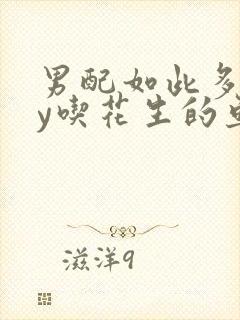 男配如此多
y喫花生的
滋洋9